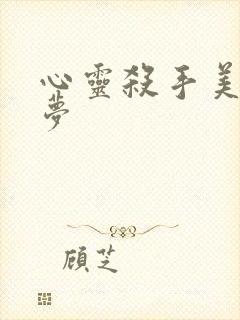 心靈殺手美
夢
顧芝